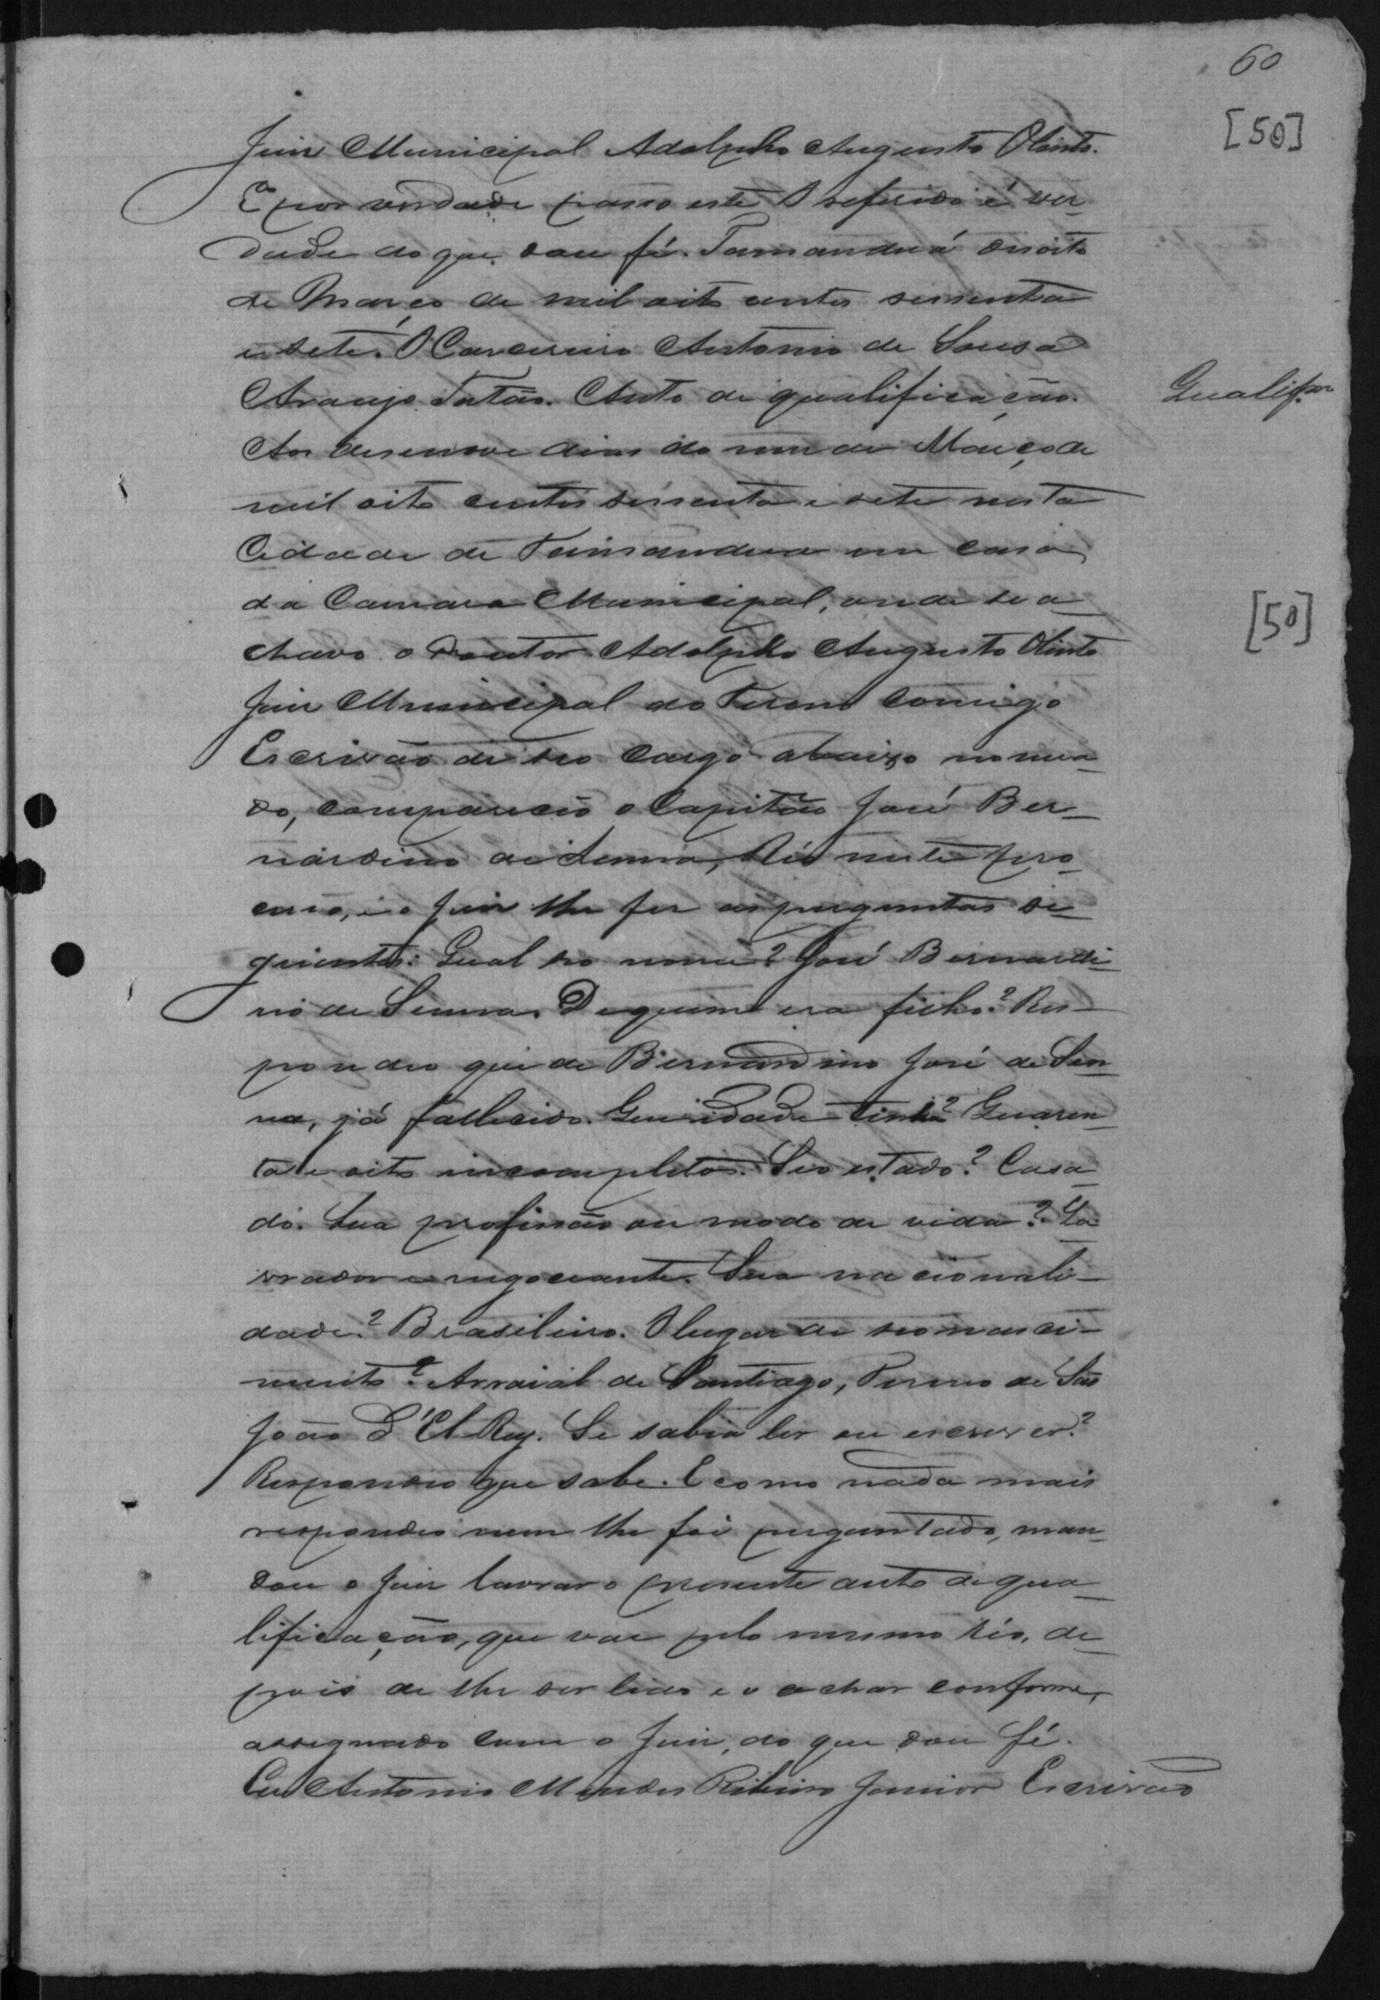 60
[50]
Juiz Municipal Adolpho Augusto Olinto.
E por verdade passo este O referido é ver-
dade do que dou fé. Tamanduá desoito
de Março de mil oito centos sessenta
e sete. O Carcereiro Antonio de Sousa
Araujo Tatão. Auto de qualificação.
Qualifçam
Aos desenove dias do mez de Março de
mil oito centos sessenta e sete nesta
Cidade de Tamandua em casa
da Camara Municipal, onde se a
chava o Doutor Adolpho Augusto Olinto
[50]
Juiz Municipal do Termo comigo
Escrivão de seo cargo abaixo nomea-
do, compareceo o Capitão José Ber-
nardino de Senna, Réo neste pro-
cesso, e o Juiz lhe fez as preguntas se-
guintes: Qual seo nome? José Bernardi-
no de Senna. De quem era filho? Res-
pondeo que de Bernardino José de Sen-
na, já fallecido. Que idade tinha? Quaren-
ta e oito incompletos. Seo estado? Casa-
do. Sua profissão ou modo de vida? La-
vrador e negociante. Sua nacionali-
dade? Brasileiro. O lugar de seo nasci-
mento? Arraial de Santiago, Termo de São
João D'El Rey. Se sabia ler ou escrever?
Respondeo que sabe. E como nada mais
respondeo nem lhe foi preguntado, man-
dou o Juiz lavrar o presente auto de qua-
lificação, que vae pelo mesmo Réo, de-
pois de lhe ser lido e o achar conforme,
assignado com o Juiz, do que dou fé.
Eu Antonio Mendes Ribeiro Junior Escrivão